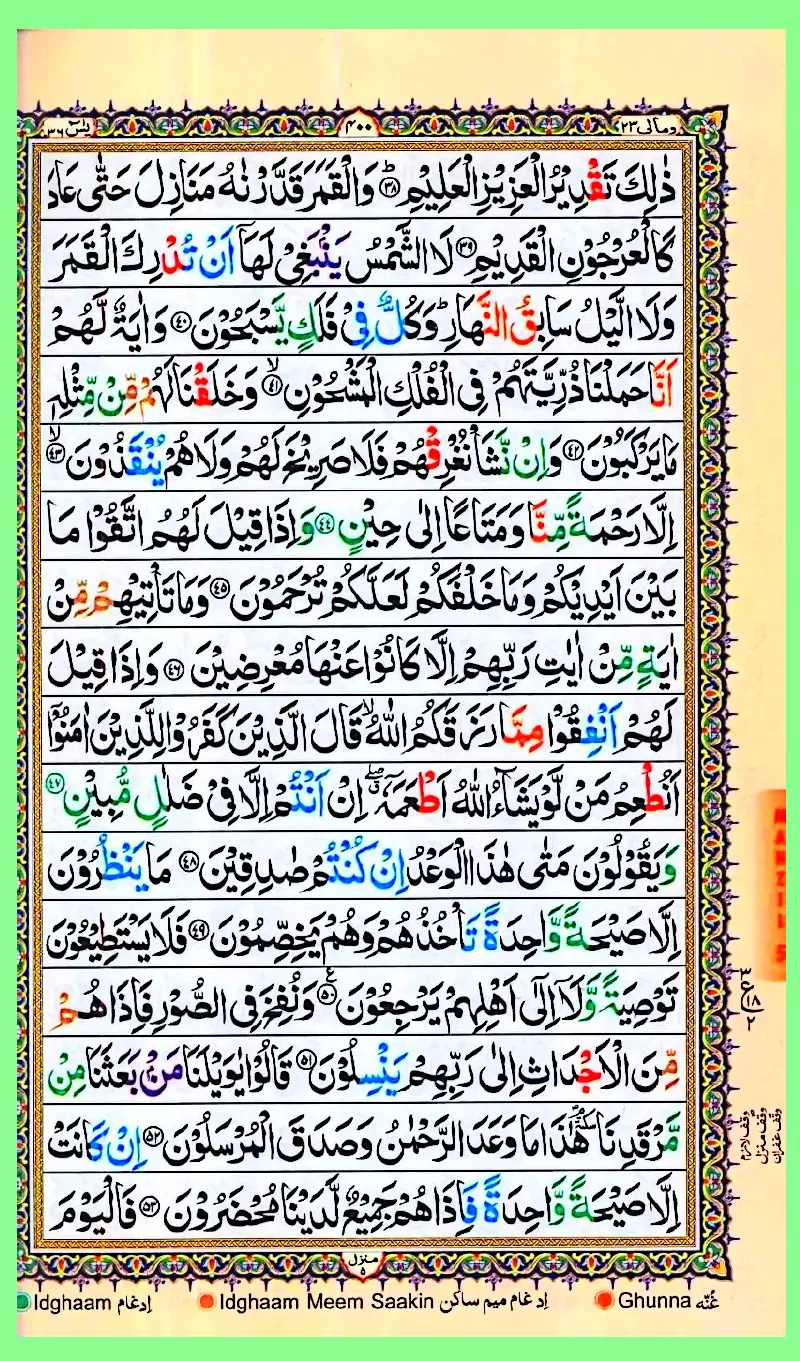 ومالی ۲۳ ۴۰۰ یٰسٓ ۳۶
ذٰلِكَ تَقْدِيْرُ الْعَزِيْزِ الْعَلِيْمِ ؕ‏﴿۳۸﴾ وَالْقَمَرَ قَدَّرْنٰهُ مَنَازِلَ حَتّٰى عَادَ
كَالْعُرْجُوْنِ الْقَدِيْمِ ﴿۳۹﴾ لَا الشَّمْسُ يَنْۢبَغِىْ لَهَاۤ اَنْ تُدْرِكَ الْقَمَرَ
وَلَا الَّيْلُ سَابِقُ النَّهَارِ ؕ وَكُلٌّ فِىْ فَلَكٍ يَّسْبَحُوْنَ ﴿۴۰﴾ وَاٰيَةٌ لَّهُمْ
اَنَّا حَمَلْنَا ذُرِّيَّتَهُمْ فِى الْفُلْكِ الْمَشْحُوْنِ ۙ‏﴿۴۱﴾ وَخَلَقْنَا لَهُمْ مِّنْ مِّثْلِهٖ
مَا يَرْكَبُوْنَ ﴿۴۲﴾ وَاِنْ نَّشَاْ نُغْرِقْهُمْ فَلَا صَرِيْخَ لَهُمْ وَلَا هُمْ يُنْقَذُوْنَ ۙ‏﴿۴۳﴾
اِلَّا رَحْمَةً مِّنَّا وَمَتَاعًا اِلٰى حِيْنٍ ﴿۴۴﴾ وَاِذَا قِيْلَ لَهُمُ اتَّقُوْا مَا
بَيْنَ اَيْدِيْكُمْ وَمَا خَلْفَكُمْ لَعَلَّكُمْ تُرْحَمُوْنَ ﴿۴۵﴾ وَمَا تَاْتِيْهِمْ مِّنْ
اٰيَةٍ مِّنْ اٰيٰتِ رَبِّهِمْ اِلَّا كَانُوْا عَنْهَا مُعْرِضِيْنَ ﴿۴۶﴾ وَاِذَا قِيْلَ
لَهُمْ اَنْفِقُوْا مِمَّا رَزَقَكُمُ اللّٰهُ ۙ قَالَ الَّذِيْنَ كَفَرُوْا لِلَّذِيْنَ اٰمَنُوْۤا
اَنُطْعِمُ مَنْ لَّوْ يَشَآءُ اللّٰهُ اَطْعَمَهٗۤ ۖ اِنْ اَنْتُمْ اِلَّا فِىْ ضَلٰلٍ مُّبِيْنٍ ﴿۴۷﴾
وَيَقُوْلُوْنَ مَتٰى هٰذَا الْوَعْدُ اِنْ كُنْتُمْ صٰدِقِيْنَ ﴿۴۸﴾ مَا يَنْظُرُوْنَ
اِلَّا صَيْحَةً وَّاحِدَةً تَاْخُذُهُمْ وَهُمْ يَخِصِّمُوْنَ ﴿۴۹﴾ فَلَا يَسْتَطِيْعُوْنَ
تَوْصِيَةً وَّلَاۤ اِلٰٓى اَهْلِهِمْ يَرْجِعُوْنَ ﴿۵۰﴾ وَنُفِخَ فِى الصُّوْرِ فَاِذَا هُمْ
مِّنَ الْاَجْدَاثِ اِلٰى رَبِّهِمْ يَنْسِلُوْنَ ﴿۵۱﴾ قَالُوْا يٰوَيْلَنَا مَنْۢ بَعَثَنَا مِنْ
مَّرْقَدِنَا ۘ هٰذَا مَا وَعَدَ الرَّحْمٰنُ وَصَدَقَ الْمُرْسَلُوْنَ ﴿۵۲﴾ اِنْ كَانَتْ
اِلَّا صَيْحَةً وَّاحِدَةً فَاِذَا هُمْ جَمِيْعٌ لَّدَيْنَا مُحْضَرُوْنَ ﴿۵۳﴾ فَالْيَوْمَ
منزل ۵
MANZIL 5
۳ ع ۱۸ ۲
Idghaam ادغام Idghaam Meem Saakin ادغام میم ساکن Ghunna غُنّه